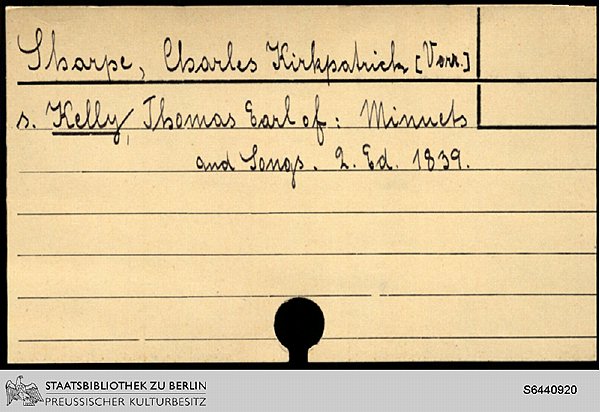 Sharpe, Charles Kirkpatrick [Verr.]
s. Kelly, Thomas Earl of: Minuets
and Songs. 2. Ed. 1839.
STAATSBIBLIOTHEK ZU BERLIN
PREUSSISCHER KULTURBESITZ
S6440920